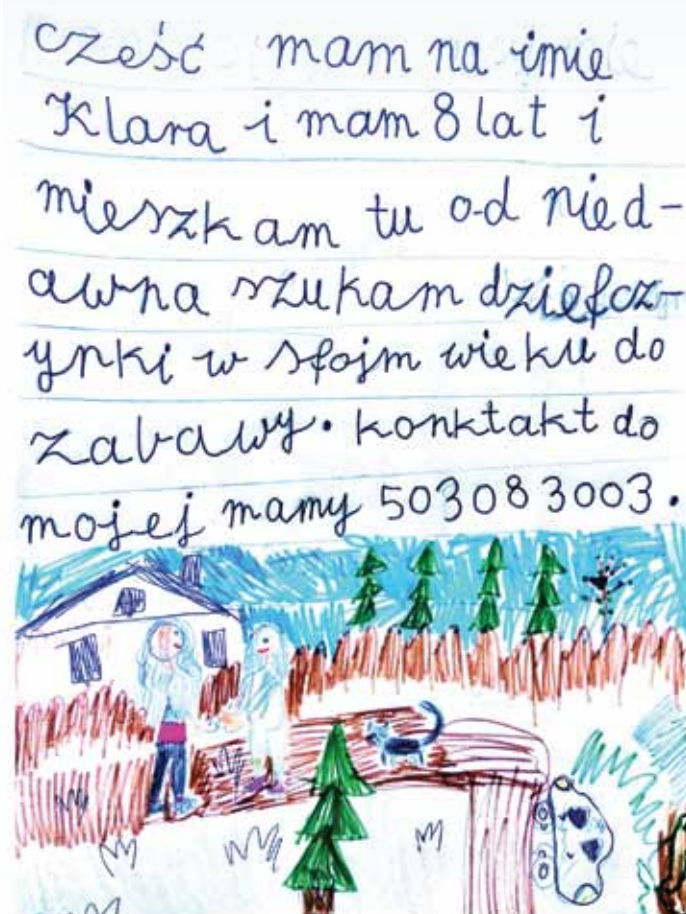 cześć mam na imie
Klara i mam 8 lat i
mieszkam tu od nied-
awna szukam dziefcz-
ynki w sfojm wieku do
zabawy. konktakt do
mojej mamy 503083003.